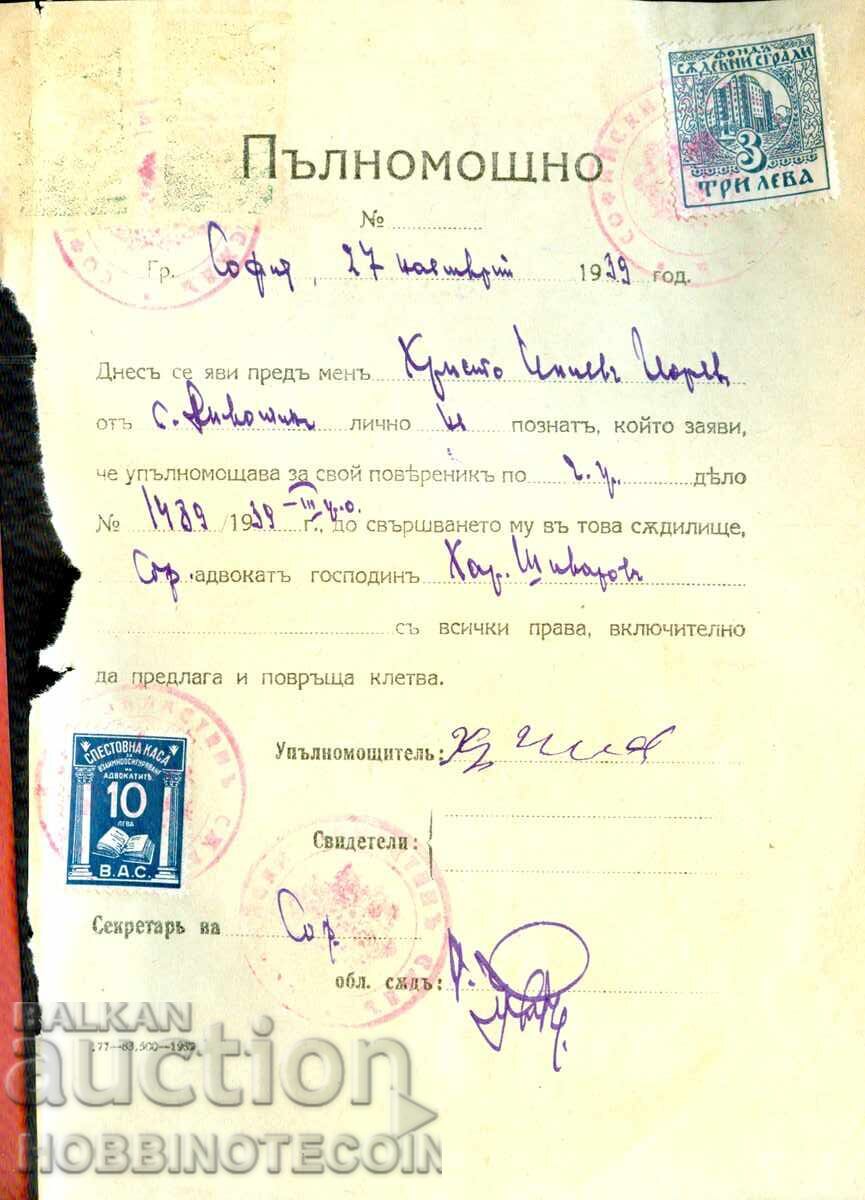 ФОНДЪ
СѪДЕБНИ СГРАДИ
3
ТРИ ЛЕВА
Пълномощно
№
Гр. София, 27 ноемврий 1939 год.
Днесъ се яви предъ менъ Христо
отъ с. лично и познатъ, който заяви,
че упълномощава за свой повѣреникъ по г. у. дѣло
№ 1489/1939 г., до свършването му въ това сѫдилище,
Соф. адвокатъ господинъ Хар. Шиваровъ
съ всички права, включително
да предлага и повръща клетва.
СПЕСТОВНА КАСА
ЗА
ВЗАИМНООСИГУРЯВАНЕ
НА
АДВОКАТИТѢ
10
ЛЕВА
В.А.С.
Упълномощитель:
Свидетели:
Секретарь на Соф.
обл. сѫдъ:
BALKAN
auction
HOBBINOTECOIN